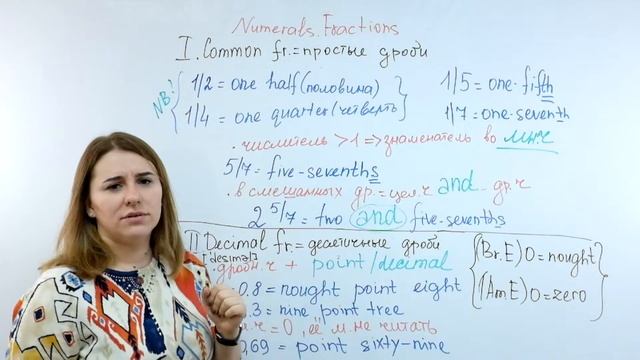 Numerals. Fractions
I. Common fr. = простые дроби
NB! 1/2 = one half (половина)
1/4 = one quarter (четверть)
1/5 = one-fifth
1/7 = one-seventh
. числитель > 1 => знаменатель во мн.ч
5/7 = five-sevenths
. в смешанных др. = цел.ч and др.ч
2 5/7 = two and five-sevenths
II Decimal fr. = десятичные дроби
['desimal]
. дробн.ч + point/decimal
0.8 = nought point eight
.3 = nine point tree
.ч = 0, её м. не читать
0,69 = point sixty-nine
(Br.E) 0 = nought
(Am.E) 0 = zero